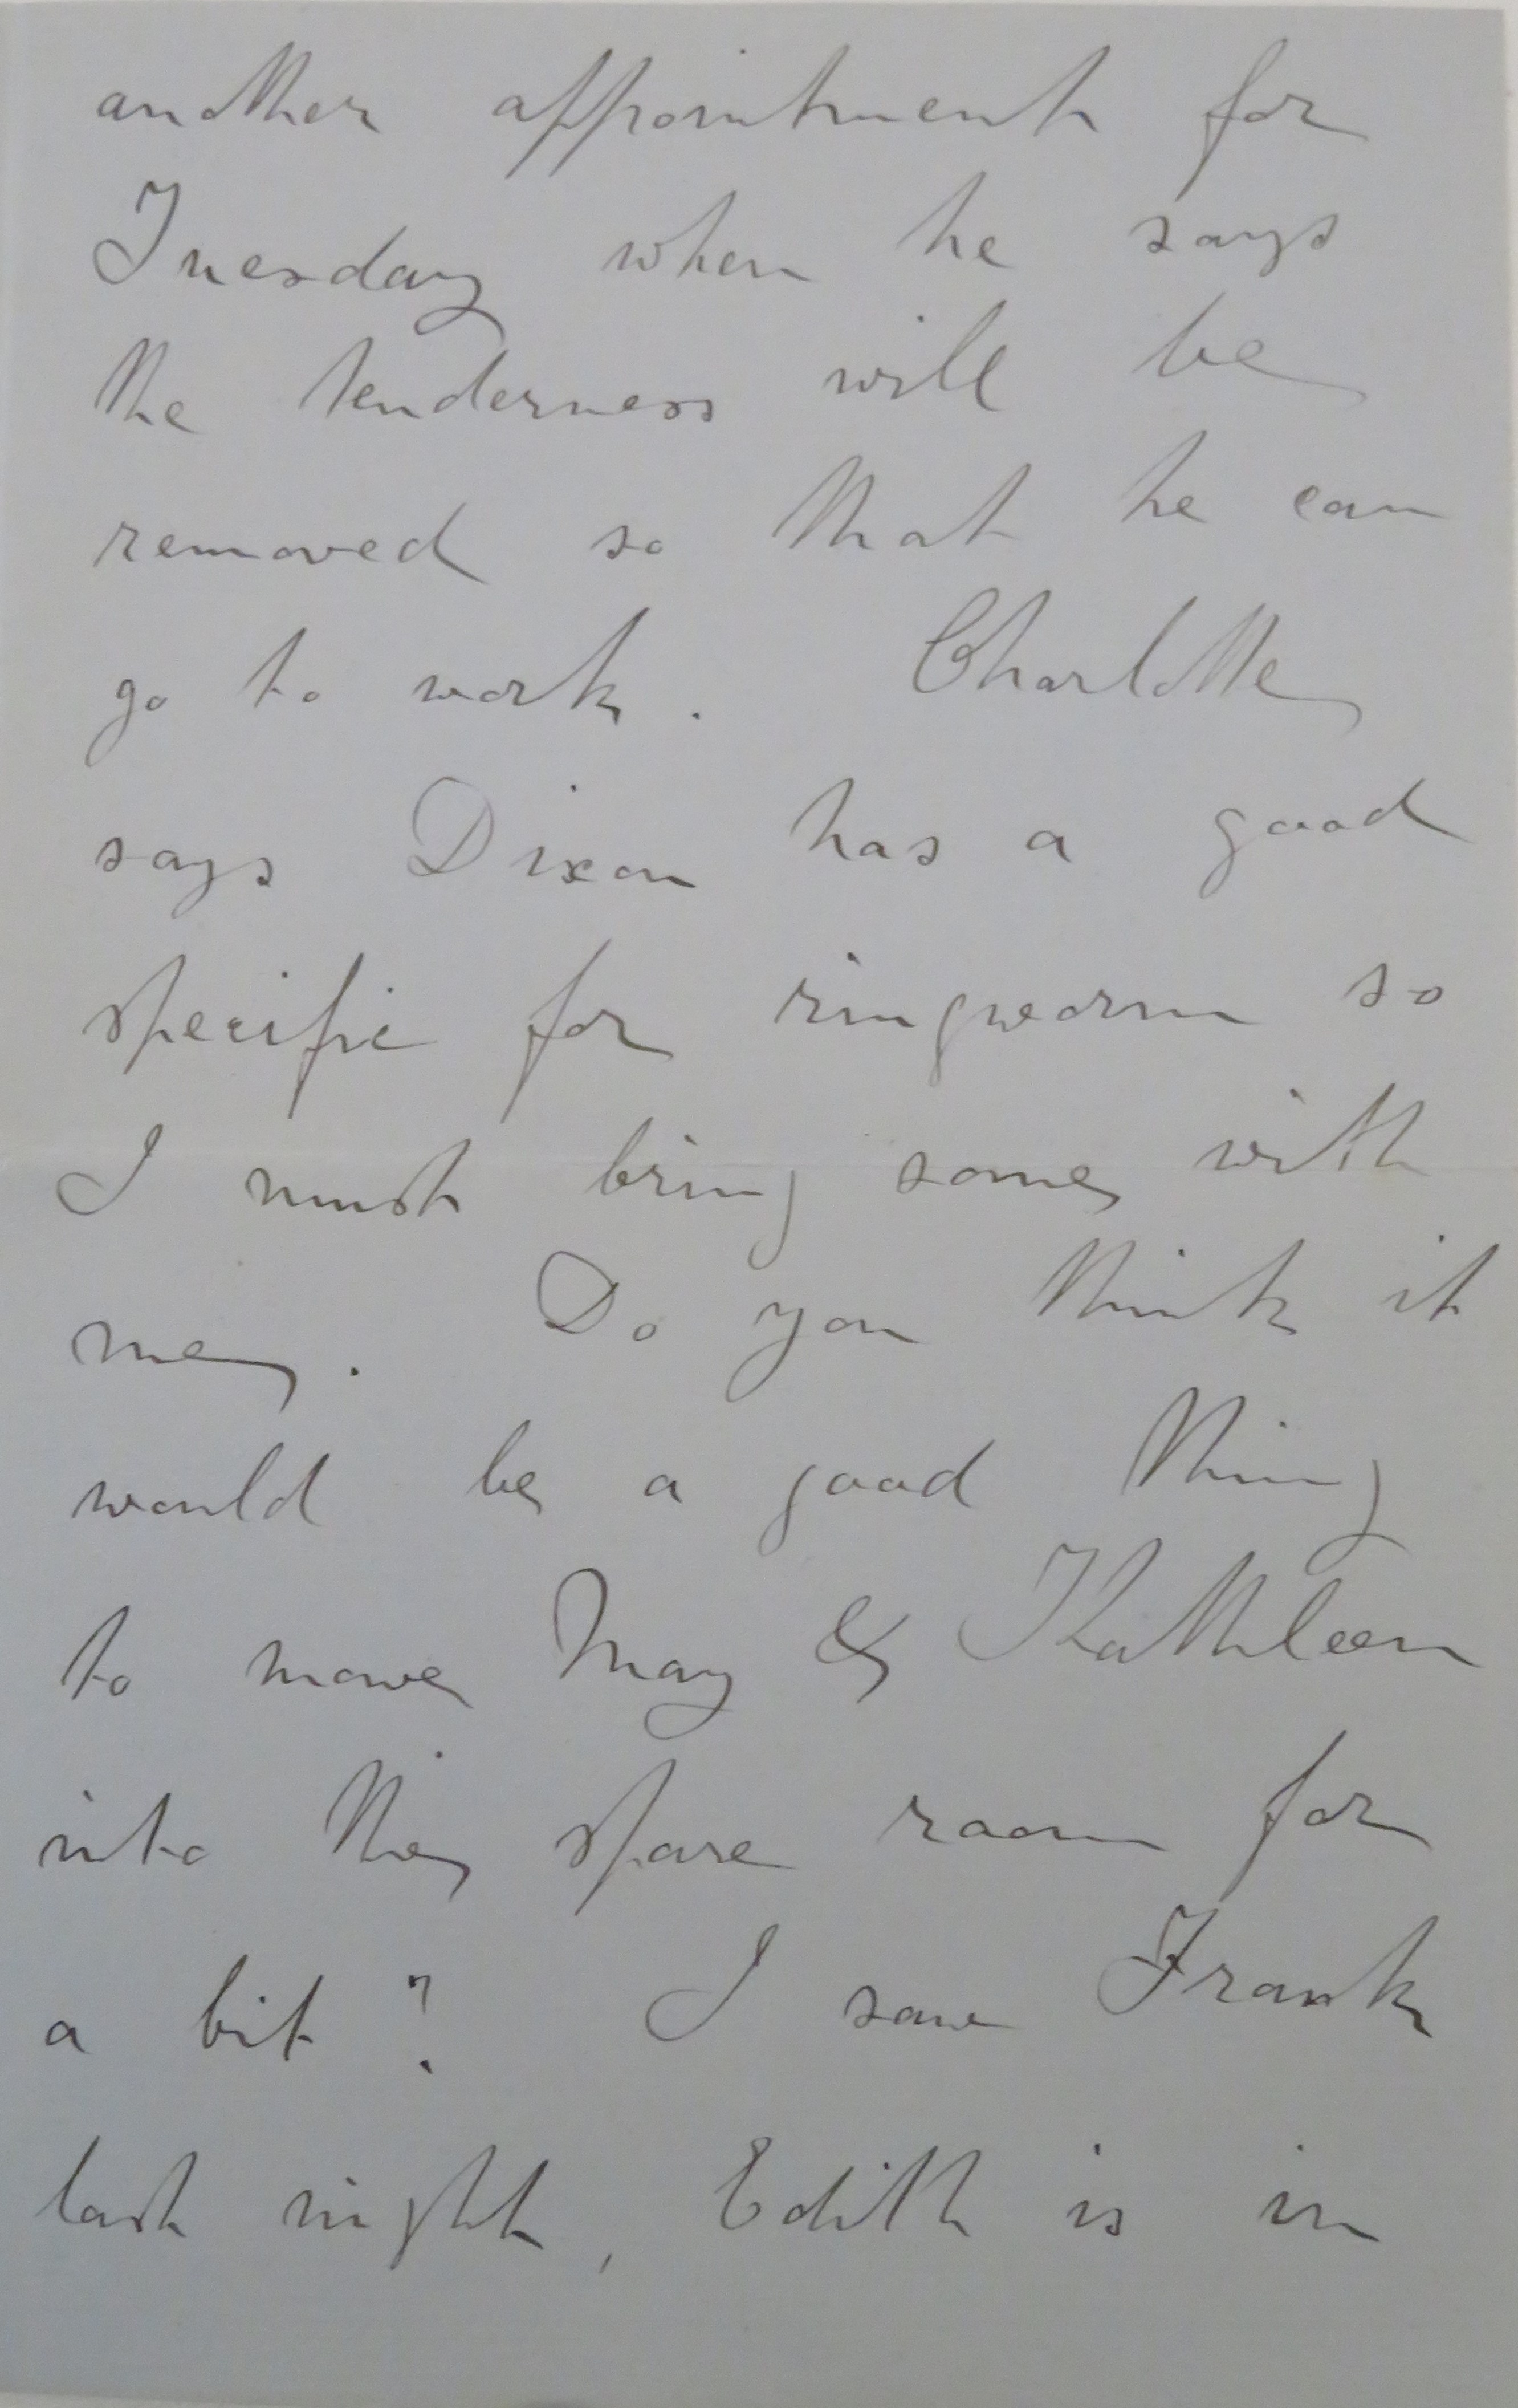 another appointment for
Tuesday when he says
the tenderness will be
removed so that he can
go to work. Charlotte
says Dixon has a good
specific for ringworm so
I must bring some with
me. Do you think it
would be a good thing
to move May & Kathleen
into the spare room for
a bit? I saw Frank
last night, Edith is in